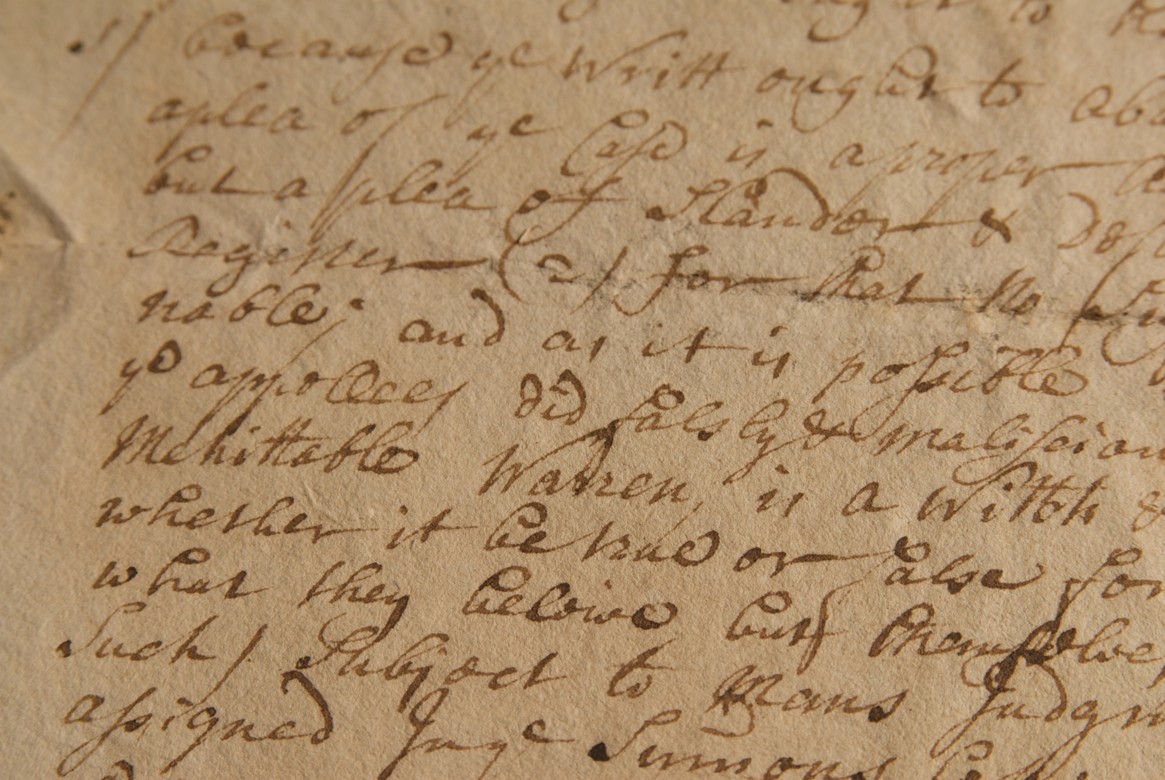 ought to be
1) because ye Writt ought to aba
aplea of ye Case is a proper
but a plea of Slander & Defa
Register (2) for that no
nable; and as it is possible
ye appollees did falsly & malisciou
Mehittable Warren, is a Wittch &
whether it be true or false for
what they beleive but themselves
Such) Subject to Mans Judgm
assigned In ye Summons